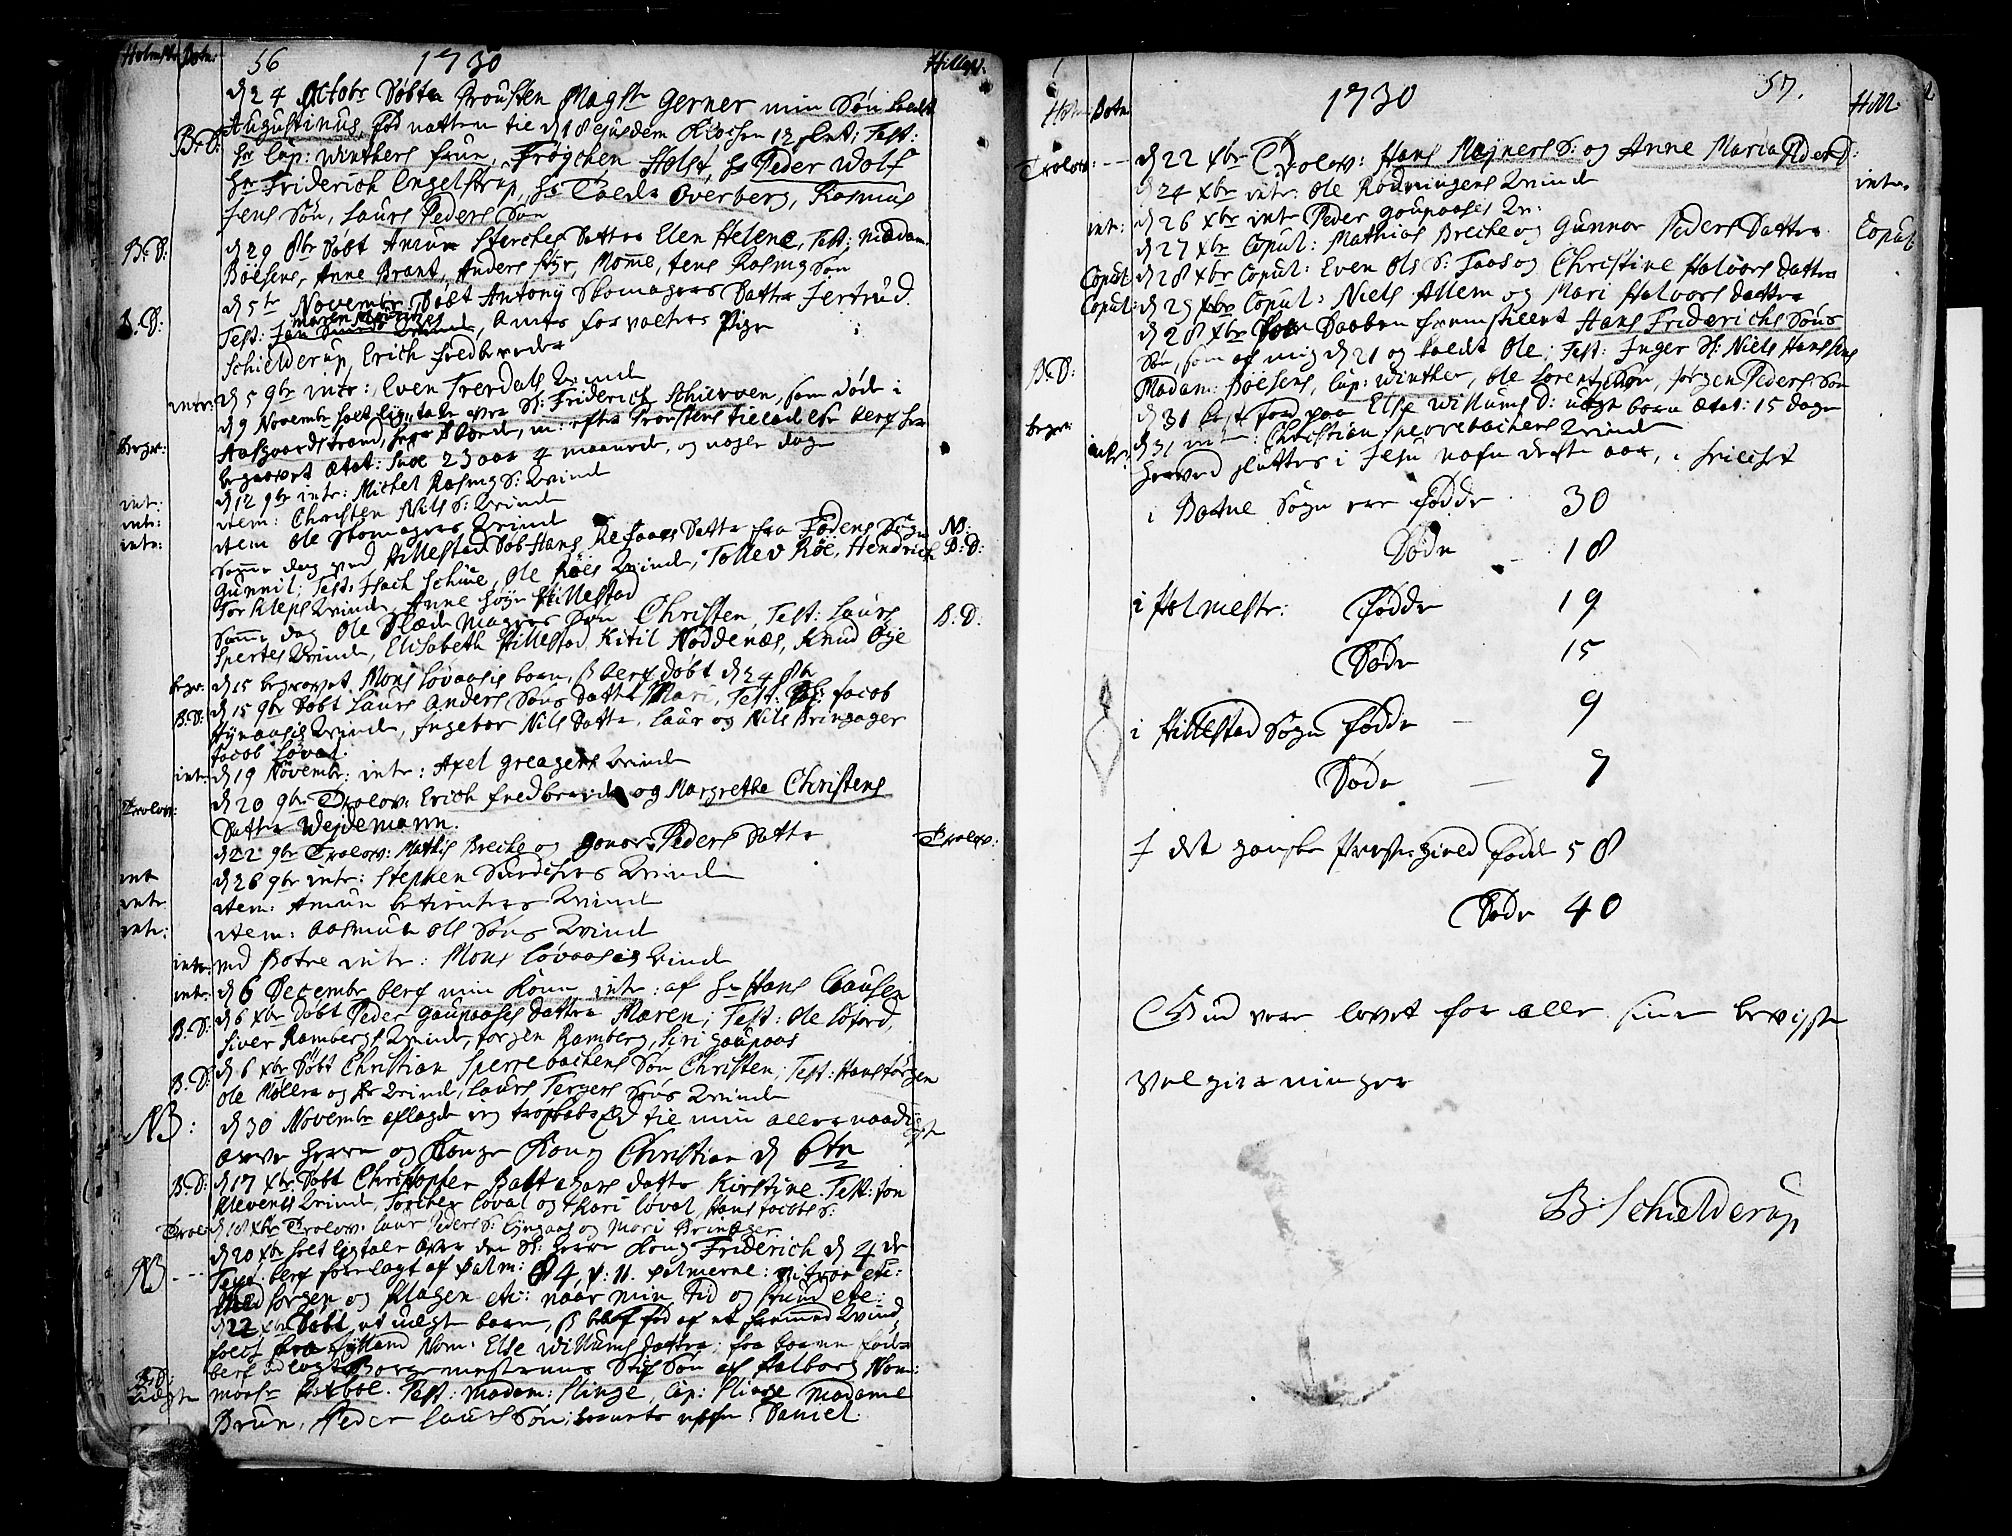 Holmstr: Botn:
56
1730
Hillest:
d 24 Octobr Döbte Prousten Magstr Gerner min Sön kaldt
Augustinus, föd natten til d 18 ejusdem Klochen 12 slet; Test:
B.D:
Hr Cap: Winthers frue, Frögchen Holst, Hr Peder Wolf
Hr Friderich Engelstrup, Overberg, Rasmus
Jens Sön, Laurs Peders Sön
B.D:
d 29 8br Döbt Amun Datter Elen Helene, Test: Madam
Böesens, Anne Brant, Anders Momme, Jens Rasmus Sön
d 5te Novembr Döbt Antonÿ Skomagers Datter Jertrud.
B.D:
Test: Amts forvalters Pige
Schielderup, Erich fredbereder
intr: d 5 9br intr: Even Trerdals Qvinde
d 9 Novembr holt ligtale over Sl: Friderich Schierven, som döde i
Aasgaardstrand, efter Proustens tilladelse blef her
begr: begravet ætat: suæ 23 aar 4 maaned, og nogle dage
intr: d 12 9br intr: Michel Rasmus S: Qvinde
intr: item: Christen Nils S: Qvinde
intr: item Ole Skomagers Qvinde
Samme dag ved Hillestad Döb Hans Datter fra Fodens Sogn NB:
Gunnil; Test: Isach Schine, Ole Röes Qvinde, Tollev Röe, Hendrich B:D:
Qvinde, Anne Sögn Hillestad
Samme dag Ole Magers Sön Christen, Test: Laurs B.D:
Spertes Qvinde, Elisabeth Hillestad, Kitil Noddenæs, Knud Öÿe
begr: d 15 begravet Mons Lövaasis barn, blef döbt d 24 8br
B.D: d 15 9br Döbt Laurs Anders Söns datter Mari, Test: Jacob
Qvinde, Ingebor Nils Datter, Laur og Nils Bringager
Jacob Löval.
intr: d 19 Novembr: intr: Axel greagers Qvinde
Trolov: d 20 9br Trolov: Erich fredbereder og Margrethe Christens
Datter Wejdemann.
d 22 9br Trolov: Mathis Breche og Gonor Peders Datter Trolov:
intr d 26 9br intr: Stephen Qvinde
intr item: Amun betienters Qvinde
intr: item: Aasmun Ols Söns Qvinde
intr: ved Botne intr: Mons Lövaasis Qvinde
intr: d 6 Decembr blef min Kone intr: af Hr Hans Clausen
B.D: d 6 xbr Döbt Peder Goupaases Datter Maren; Test: Ole Löford,
Siver Rambergs Qvinde, Jorgen Ramberg, Siri Goupaas
B.D: d 6 xbr Döbt Christian Sperrebachens Sön Christen; Test: Hans Jörgen
Ole Möller og Qvinde, Laurs Torgers Söns Qvinde
NB: d 30 Novembr aflagde ieg troskabs Ed til min allernaadigste
arve herre og Konge Kong Christian d 6te
B.D: d 17 xbr Döbt Christopher Baltzars datter Kirstine. Test: Jon
Klevens Qvinde, Torchel Löval og Kari Löval, Hans Jacobs S:
Trol: d 18 xbr Trolov: Laur Peders S: Lÿngaas og Mari Bringager
d 20 xbr holt ligtale over den Sl: herre Kong Friderich d 4de
NB --- Text: blef forelagt af Psalm: 84, v: 11. Psalmerne:
Med sorgen og Klagen etc: naar min tid og stund etc:
d 22 xbr Döbt et uægte barn, blef föd af et fremmed Qvind
folch fra Jÿlland Nom: Else Willums datter; fra barne fader
B:D: blef udlagt Borgemesterens Stif Sön af Aalborg Nom:
Uægte Test: Madam: Slinge, Cap: Slinge Madame
Brun, Peder Laurs Sön; barnets nafn Daniel.
Holm: Botn
1730
57.
Hill.
Trolov: --- d 22 xbr Trolov: Hans Mejners S: og Anne Maria Peders D:
d 24 xbr intr: Ole Rödningens Qvinde
intr: d 26 xbr intr Peder goupaases Qv: intr.
d 27 xbr Copul: Mathias Breche og Gunnor Peders Datter Copul:
Copul: d 28 xbr Copul: Even Ols S: Faas og Christine Halvors datter
Copul: d 29 xbr Copul: Niels Allem og Mari Halvors datter
d 28 xbr Daaben fremstillet Hans Friderichs Söns
Sön, som af mig d 21 og kaldt Ole; Test: Inger Sl: Niels Hanssens
B.D: Madam: Böesens, Cap: Winther, Ole Lorentz Sön, Jörgen Peders Sön
begr: d 31 kast Jord paa Else Willums D: uægte barn ætat: 15 dage
intr: d 31 intr: Christian Sperrebachens Qvinde
herved sluttes i Jesu nafn dette aar, i hvilchet
i Botne Sogn ere födde 30
Döde - 18
i Holmestr: Födde 19
Döde 15
i Hillestad Sogn Födde - 9
Döde - 7
I det gansche Prestegield Födde 58
Döde 40
Gud vere lovet for alle sine beviiste
Velgierninger
B: Schielderup